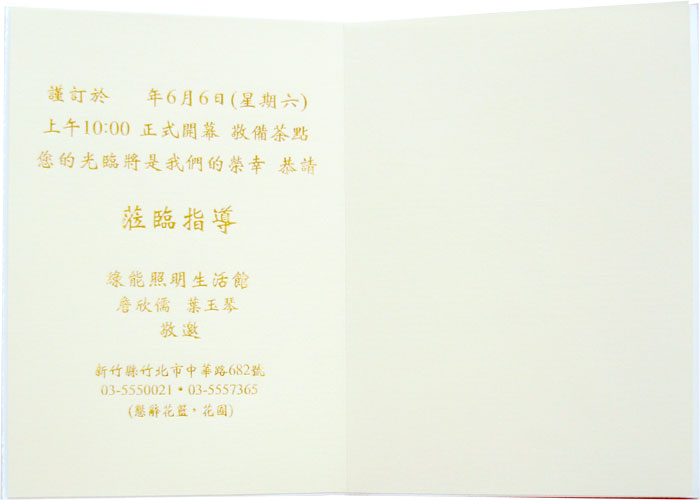 謹訂於 年6月6日(星期六)
上午10:00 正式開幕 敬備茶點
您的光臨將是我們的榮幸 恭請
蒞臨指導
綠能照明生活館
詹欣儒 葉玉琴
敬邀
新竹縣竹北市中華路682號
03-5550021•03-5557365
(懇辭花籃，花圈)